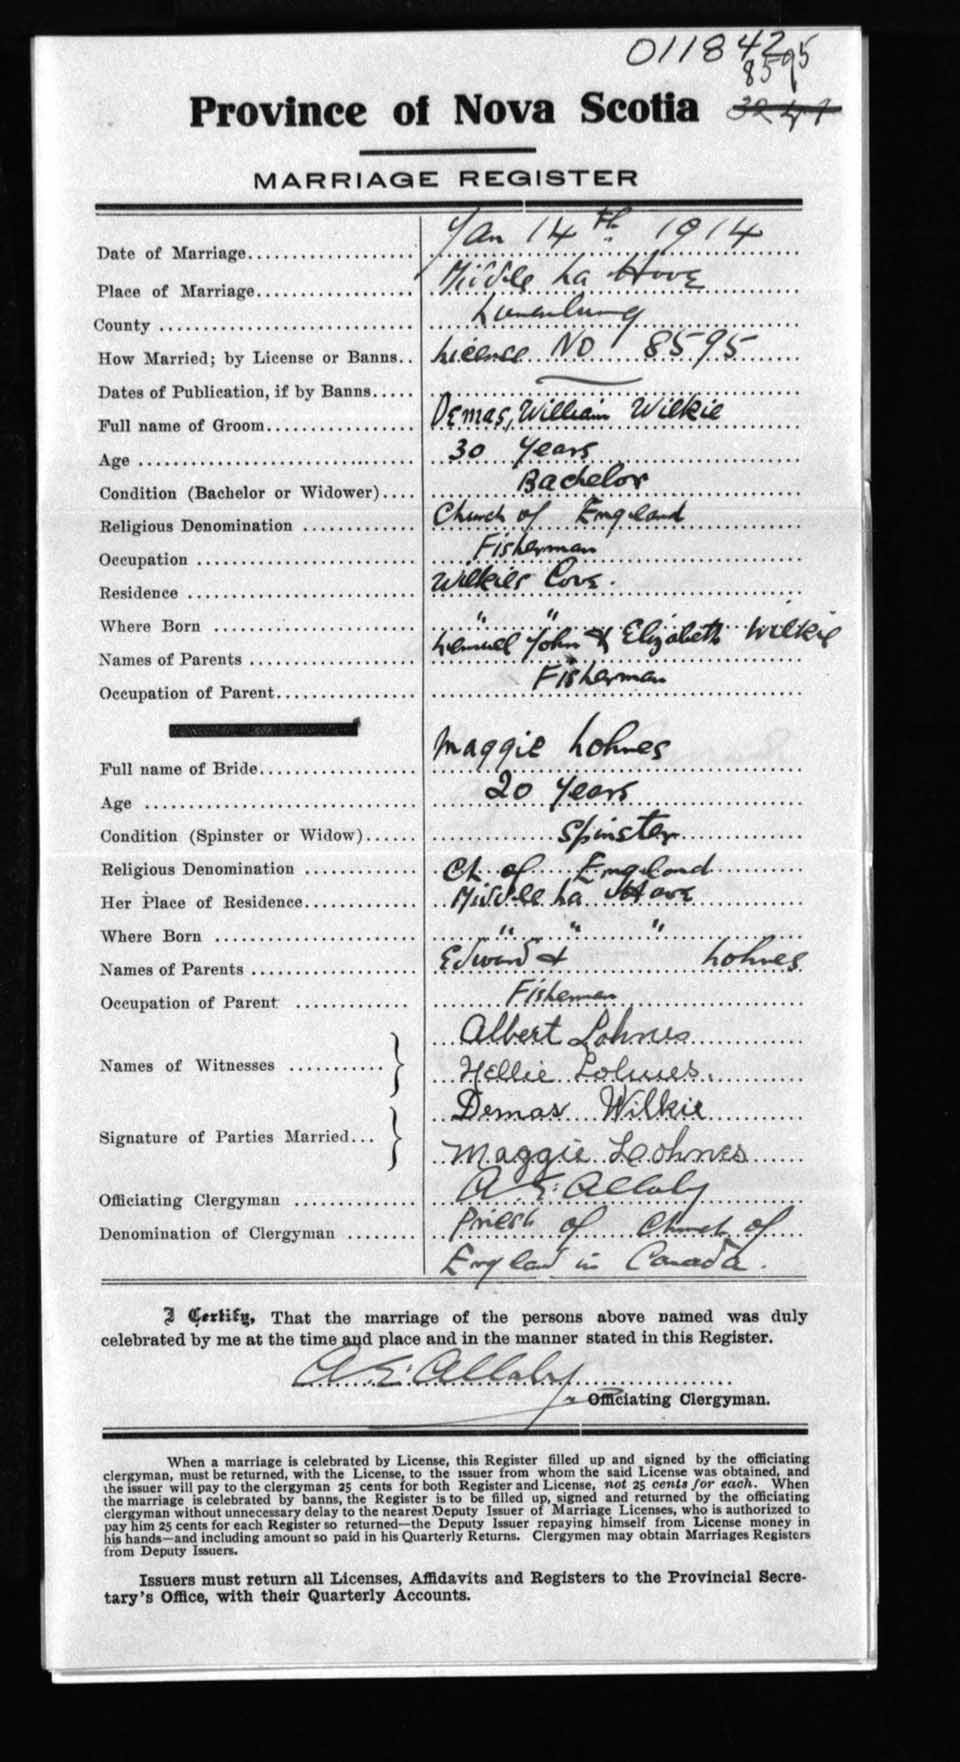 011842
8595
3247
Province of Nova Scotia
MARRIAGE REGISTER
Date of Marriage.................... Jan 14th 1914
Place of Marriage.................. Middle La Have
County ............................. Lunenburg
How Married; by License or Banns.. License No 8595
Dates of Publication, if by Banns.....
Full name of Groom................. Demas, William Wilkie
Age ................................ 30 Years
Condition (Bachelor or Widower).... Bachelor
Religious Denomination ............. Church of England
Occupation ......................... Fisherman
Residence .......................... Wilkies Cove.
Where Born ....................... " "
Names of Parents ................... Lemuel John & Elizabeth Wilkie
Occupation of Parent................ Fisherman
Full name of Bride.................. Maggie Lohnes
Age ................................ 20 Years
Condition (Spinster or Widow)...... Spinster
Religious Denomination ............. Ch. of England
Her Place of Residence............. Middle La Have
Where Born ....................... " " "
Names of Parents ................... Edward & Lohnes
Occupation of Parent ............. Fisherman
Names of Witnesses ........... } Albert Lohnes
Nellie Lohnes.
Signature of Parties Married... } Demas Wilkie
Maggie Loohnes
Officiating Clergyman .............. A. E. Allaby
Denomination of Clergyman ........ Priest of Church of
England in Canada.
I Certify, That the marriage of the persons above named was duly
celebrated by me at the time and place and in the manner stated in this Register.
A. E. Allaby
Officiating Clergyman.
When a marriage is celebrated by License, this Register filled up and signed by the officiating
clergyman, must be returned, with the License, to the issuer from whom the said License was obtained, and
the issuer will pay to the clergyman 25 cents for both Register and License, not 25 cents for each. When
the marriage is celebrated by banns, the Register is to be filled up, signed and returned by the officiating
clergyman without unnecessary delay to the nearest Deputy Issuer of Marriage Licenses, who is authorized to
pay him 25 cents for each Register so returned—the Deputy Issuer repaying himself from License money in
his hands—and including amount so paid in his Quarterly Returns. Clergymen may obtain Marriages Registers
from Deputy Issuers.
Issuers must return all Licenses, Affidavits and Registers to the Provincial Secre-
tary's Office, with their Quarterly Accounts.